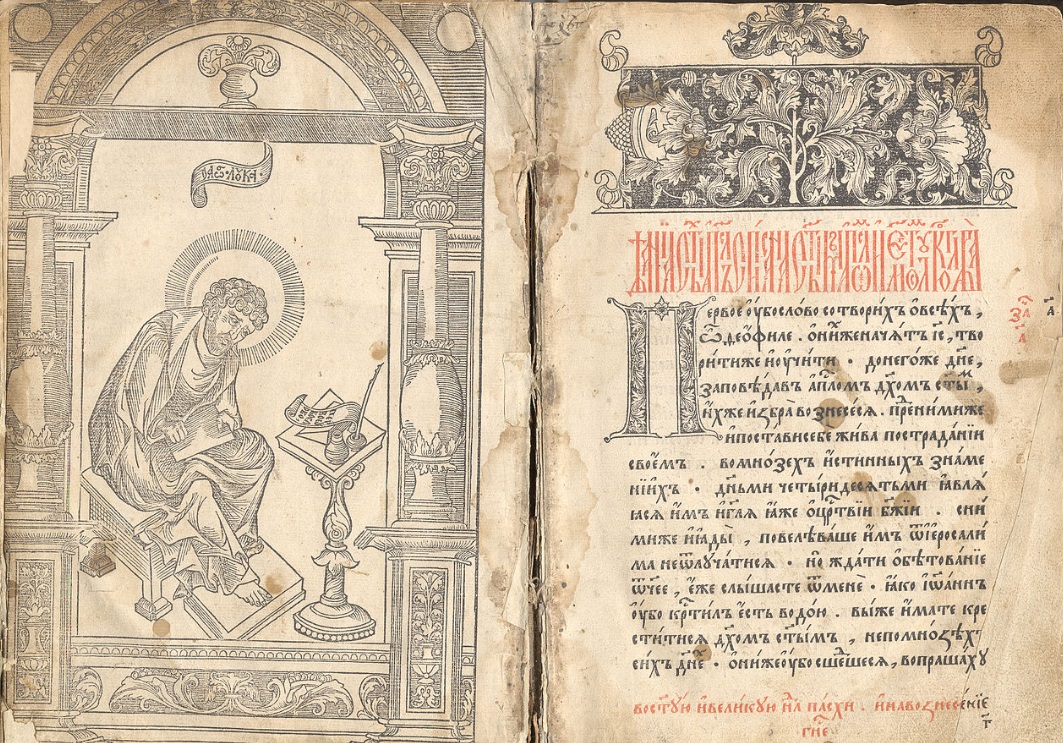 Первое ѹ҆бо слово сотворихъ ѻ҆ всѣхъ,
ѽ деѻ҆филе. ѻ҆ ни́хже начѧ́тъ і҆с, тво
рити же и҆ ѹ҆чити. до негоже дн҃е,
заповѣдавъ а҆пⷭ҇ломъ дх҃омъ ст҃ыⷨ,
и҆хже и҆збра̀ вознесесѧ. преⷣ ними же
и҆ постави себе жива по страданїи
своемъ. во мнозехъ и҆стинныхъ зна́ме
нїихъ. дн҃ьми четыридесѧтьми ꙗ҆влѧ
ꙗсѧ и҆мъ и҆ гл҃ѧ ꙗ҆же ѻ҆ црⷭ҇твїи бж҃їи. сни
миже и҆ ꙗ҆ды̀, повелѣваше и҆мъ ѿ і҆еросали
ма не ѿлѹчатисѧ. но ждати ѻ҆бѣтованїе
ѿч҃ее, є҆же слышасте ѿ менѐ. ꙗ҆ко і҆ѡ҆аннъ
ѹ҆бо крⷭ҇тилъ є҆сть водою. вы же и҆мате кре
ститисѧ дх҃омъ ст҃ымъ, не по мнозѣхъ
сихъ дн҃е. ѻ҆ни же ѹ҆бо сшеⷣшесѧ, вопрашахѹ
во ст҃ѹю и҆ великѹю нⷣлю пасхи. и҆ на вознесенїе
гн҃е